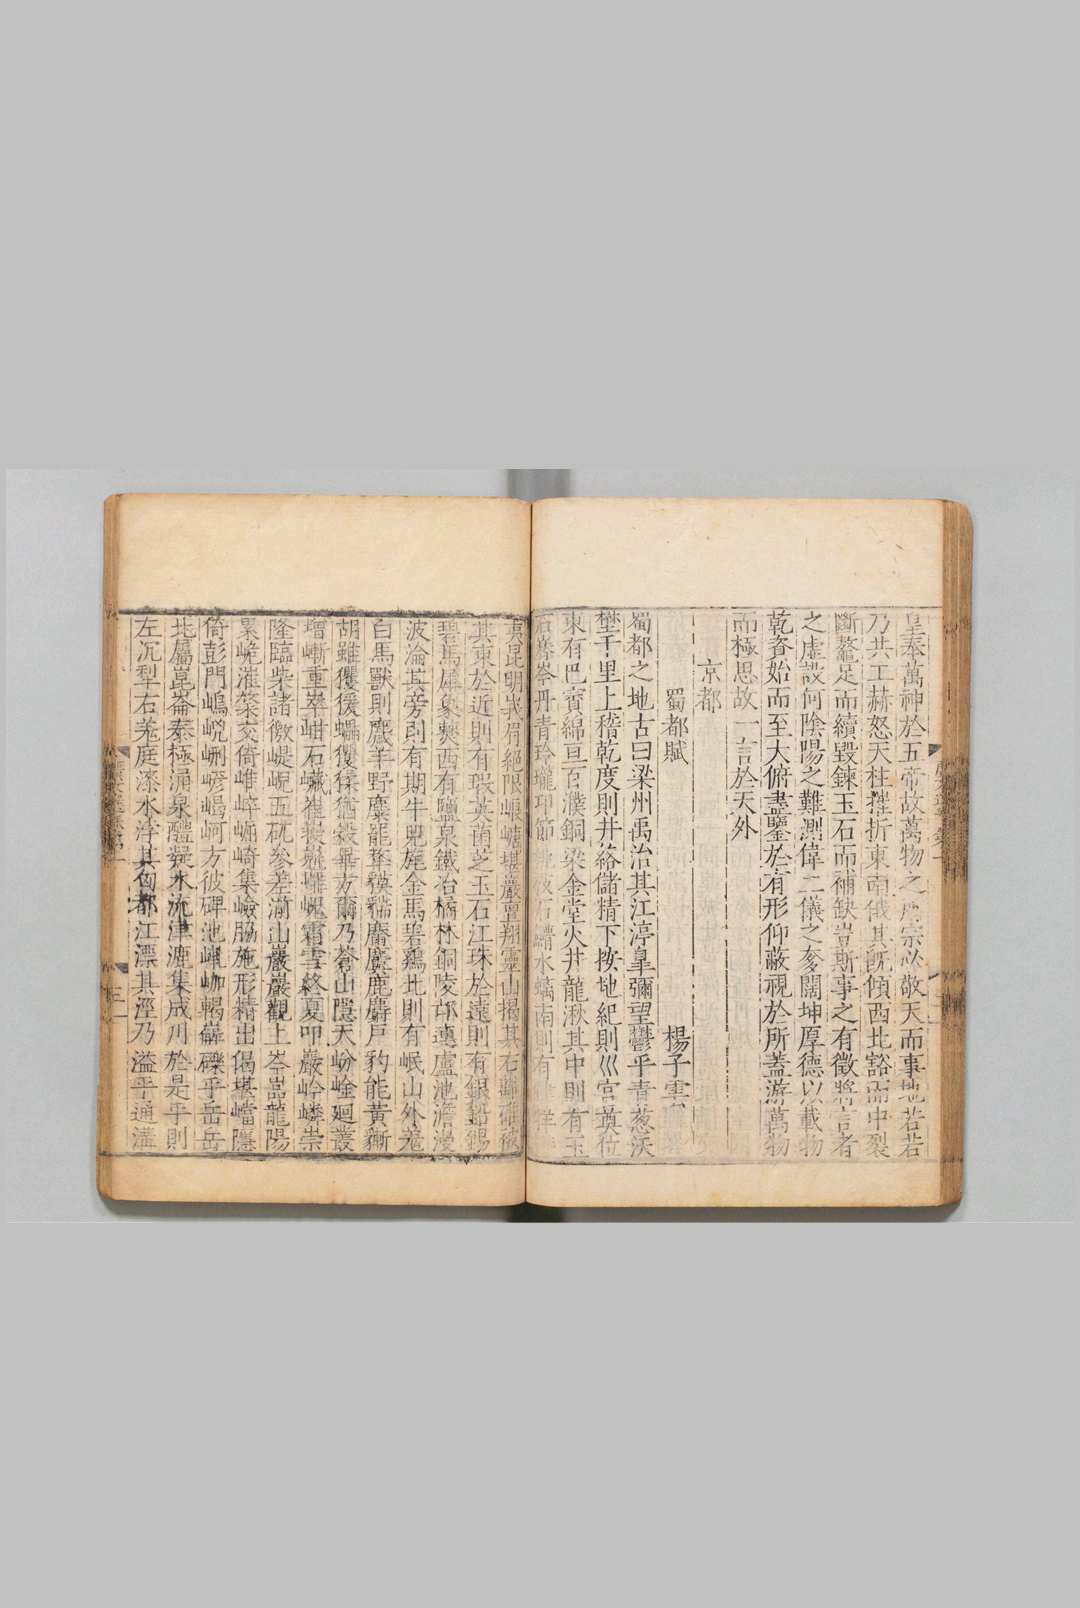 皇奉萬神於五帝故萬物之所宗必敬天而事地若
乃共工赫怒天柱摧折東南俄其既傾西北豁而中裂
斷鼇足而續毀鍊玉石而補缺豈斯事之有徵將言者
之虛設何陰陽之難測偉二儀之奓闊坤厚德以載物
乾資始而至大俯盡鑒於有形仰蔽視於所蓋游萬物
而極思故一言於天外
京都
蜀都賦 楊子雲
蜀都之地古曰梁州禹治其江渟皐彌望鬱乎青葱沃
壄千里上稽乾度則井絡儲精下按地紀則巛宮奠位
東有巴賨綿亘百濮銅梁金堂火井龍湫其中則有玉
石嶜岑丹青玲瓏邛節桃枝石䲡水螭南則有
夷昆明峩眉絕限嶘嵣堪巖亶翔靈山揭其右離碓被
其東於近則有瑕英菌芝玉石江珠於遠則有銀鉛錫
碧馬犀象僰西有鹽泉鐵冶橘林銅陵邙連盧池澹漫
波淪其旁則有期牛兕旄金馬碧鷄北則有岷山外羌
白馬獸則麙羊野麋罷犛貘貒麢䴥鹿麝戶豹能黃
胡雖玃猨蠝玃猱猶豰畢方爾乃蒼山隱天岎崟廻叢
增嶃重崒岝石巇崔霜雪終夏叩巖岭嶙崇
隆臨柴諸徼崼崥五矹參差湔山巖巖觀上岑嵓龍陽
累峗灌粲交倚嶉崪崛崎集嶮脇施形精出偈堪嵣隱
倚彭門嶋峴峢嵃嵑岢方彼碑池輵礫乎岳岳
北屬崑崙泰極涌泉醴凝水流津漉集成川於是乎則
左沉犁右羌庭漆水浮其匈都江漂其涇乃溢乎通溝